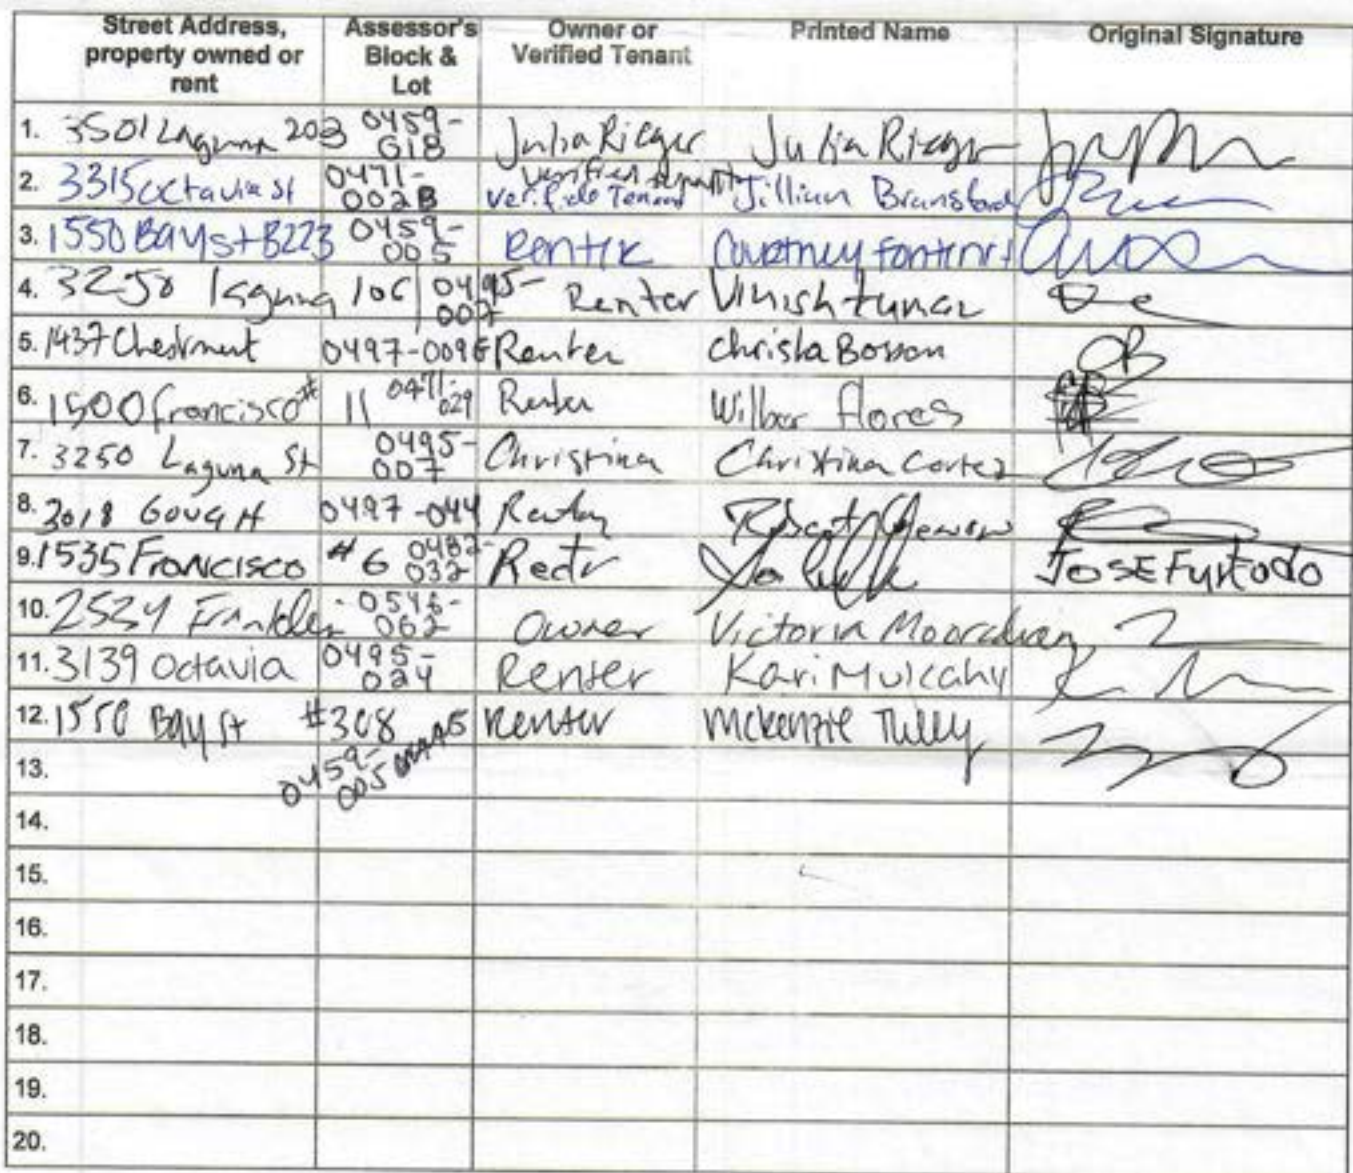 Street Address, property owned or rent | Assessor's Block & Lot | Owner or Verified Tenant | Printed Name | Original Signature
1. 3501 Laguna 203 0459-018 Julia Rieger Julia Rieger
2. 3315 Octavia St 0471-002B Verified Tenant Jillian Bransford
3. 1550 Bay St B223 0459-005 Renter Courtney Fontenot
4. 3250 Laguna 106 0495-007 Renter
5. 1437 Chestnut 0497-009E Renter Christa Bosson CB
6. 1500 Francisco # 11 0471-029 Renter Wilbor Flores
7. 3250 Laguna St 0495-007 Christina Christina Cortez
8. 3018 Gough 0497-044 Renter Robert
9. 1535 Francisco #6 0482-032 Rectr Jose Furtodo
10. 2524 Franklin 0546-062 Owner Victoria
11. 3139 Octavia 0495-024 Renter Kari Mulcahy
12. 1550 Bay St #308 Renter Mckenzie Tully
13. 0459-005
14.
15.
16.
17.
18.
19.
20.